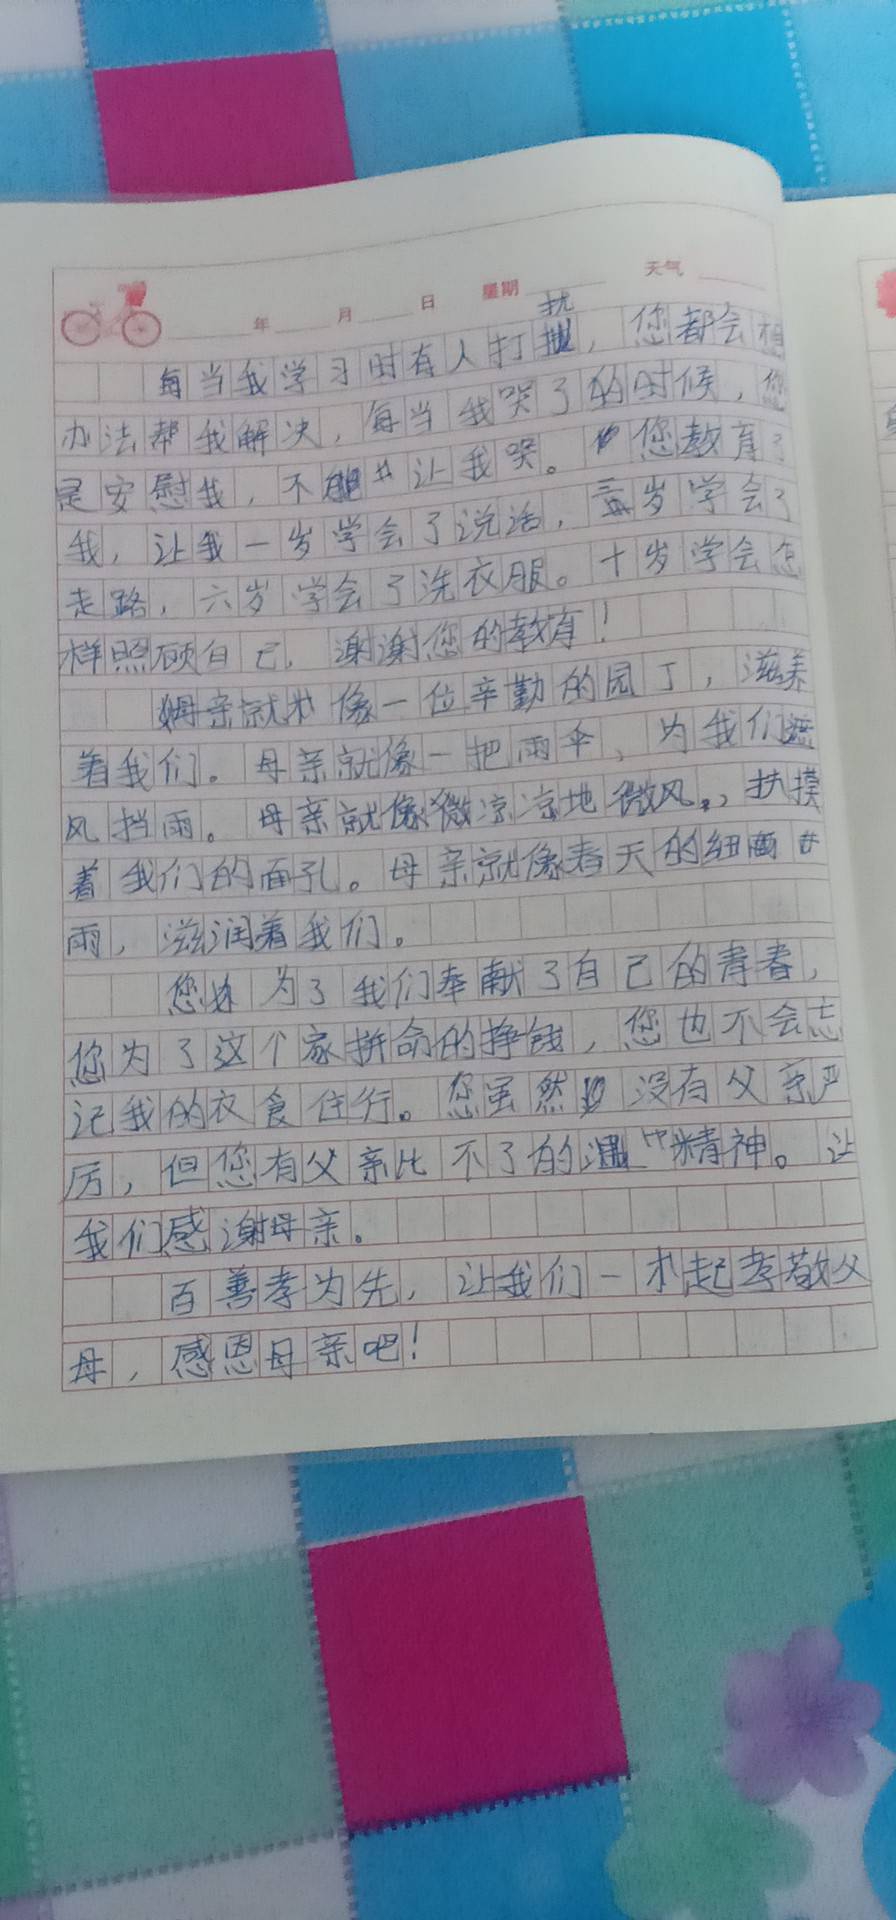 年 月 日 星期 天气
扰
每当我学习时有人打，您都会想
办法帮我解决，每当我哭了的时候，您
是安慰我，不让我哭。您教育了
我，让我一岁学会了说话，三岁学会了
走路，六岁学会了洗衣服。十岁学会怎
样照顾自己，谢谢您的教育！
母亲就像一位辛勤的园丁，滋养
着我们。母亲就像一把雨伞，为我们遮
风挡雨。母亲就像微凉凉地微风，扶摸
着我们的面孔。母亲就像春天的细
雨，滋润着我们。
您为了我们奉献了自己的青春，
您为了这个家拼命的挣钱，您也不会忘
记我的衣食住行。您虽然没有父亲严
厉，但您有父亲比不了的精神。让
我们感谢母亲。
百善孝为先，让我们一起孝敬父
母，感恩母亲吧！